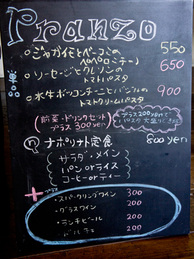 Pranzo
・ジャガイモとベーコンの
ペペロンチーノ 550
・ソーセージとクレソンの
トマトパスタ 650
・水牛ボッコンチーニとバジルの
トマトクリームパスタ 900
(前菜・ドリンクセット
プラス300yen)
プラス200yenで
パスタ大盛り
ナポリナ定食 800yen
サラダ・メイン
パン or ライス
コーヒー or ティー
+
・スパークリングワイン 300
・グラスワイン 200
・ランチビール 200
・ドルチェ 200